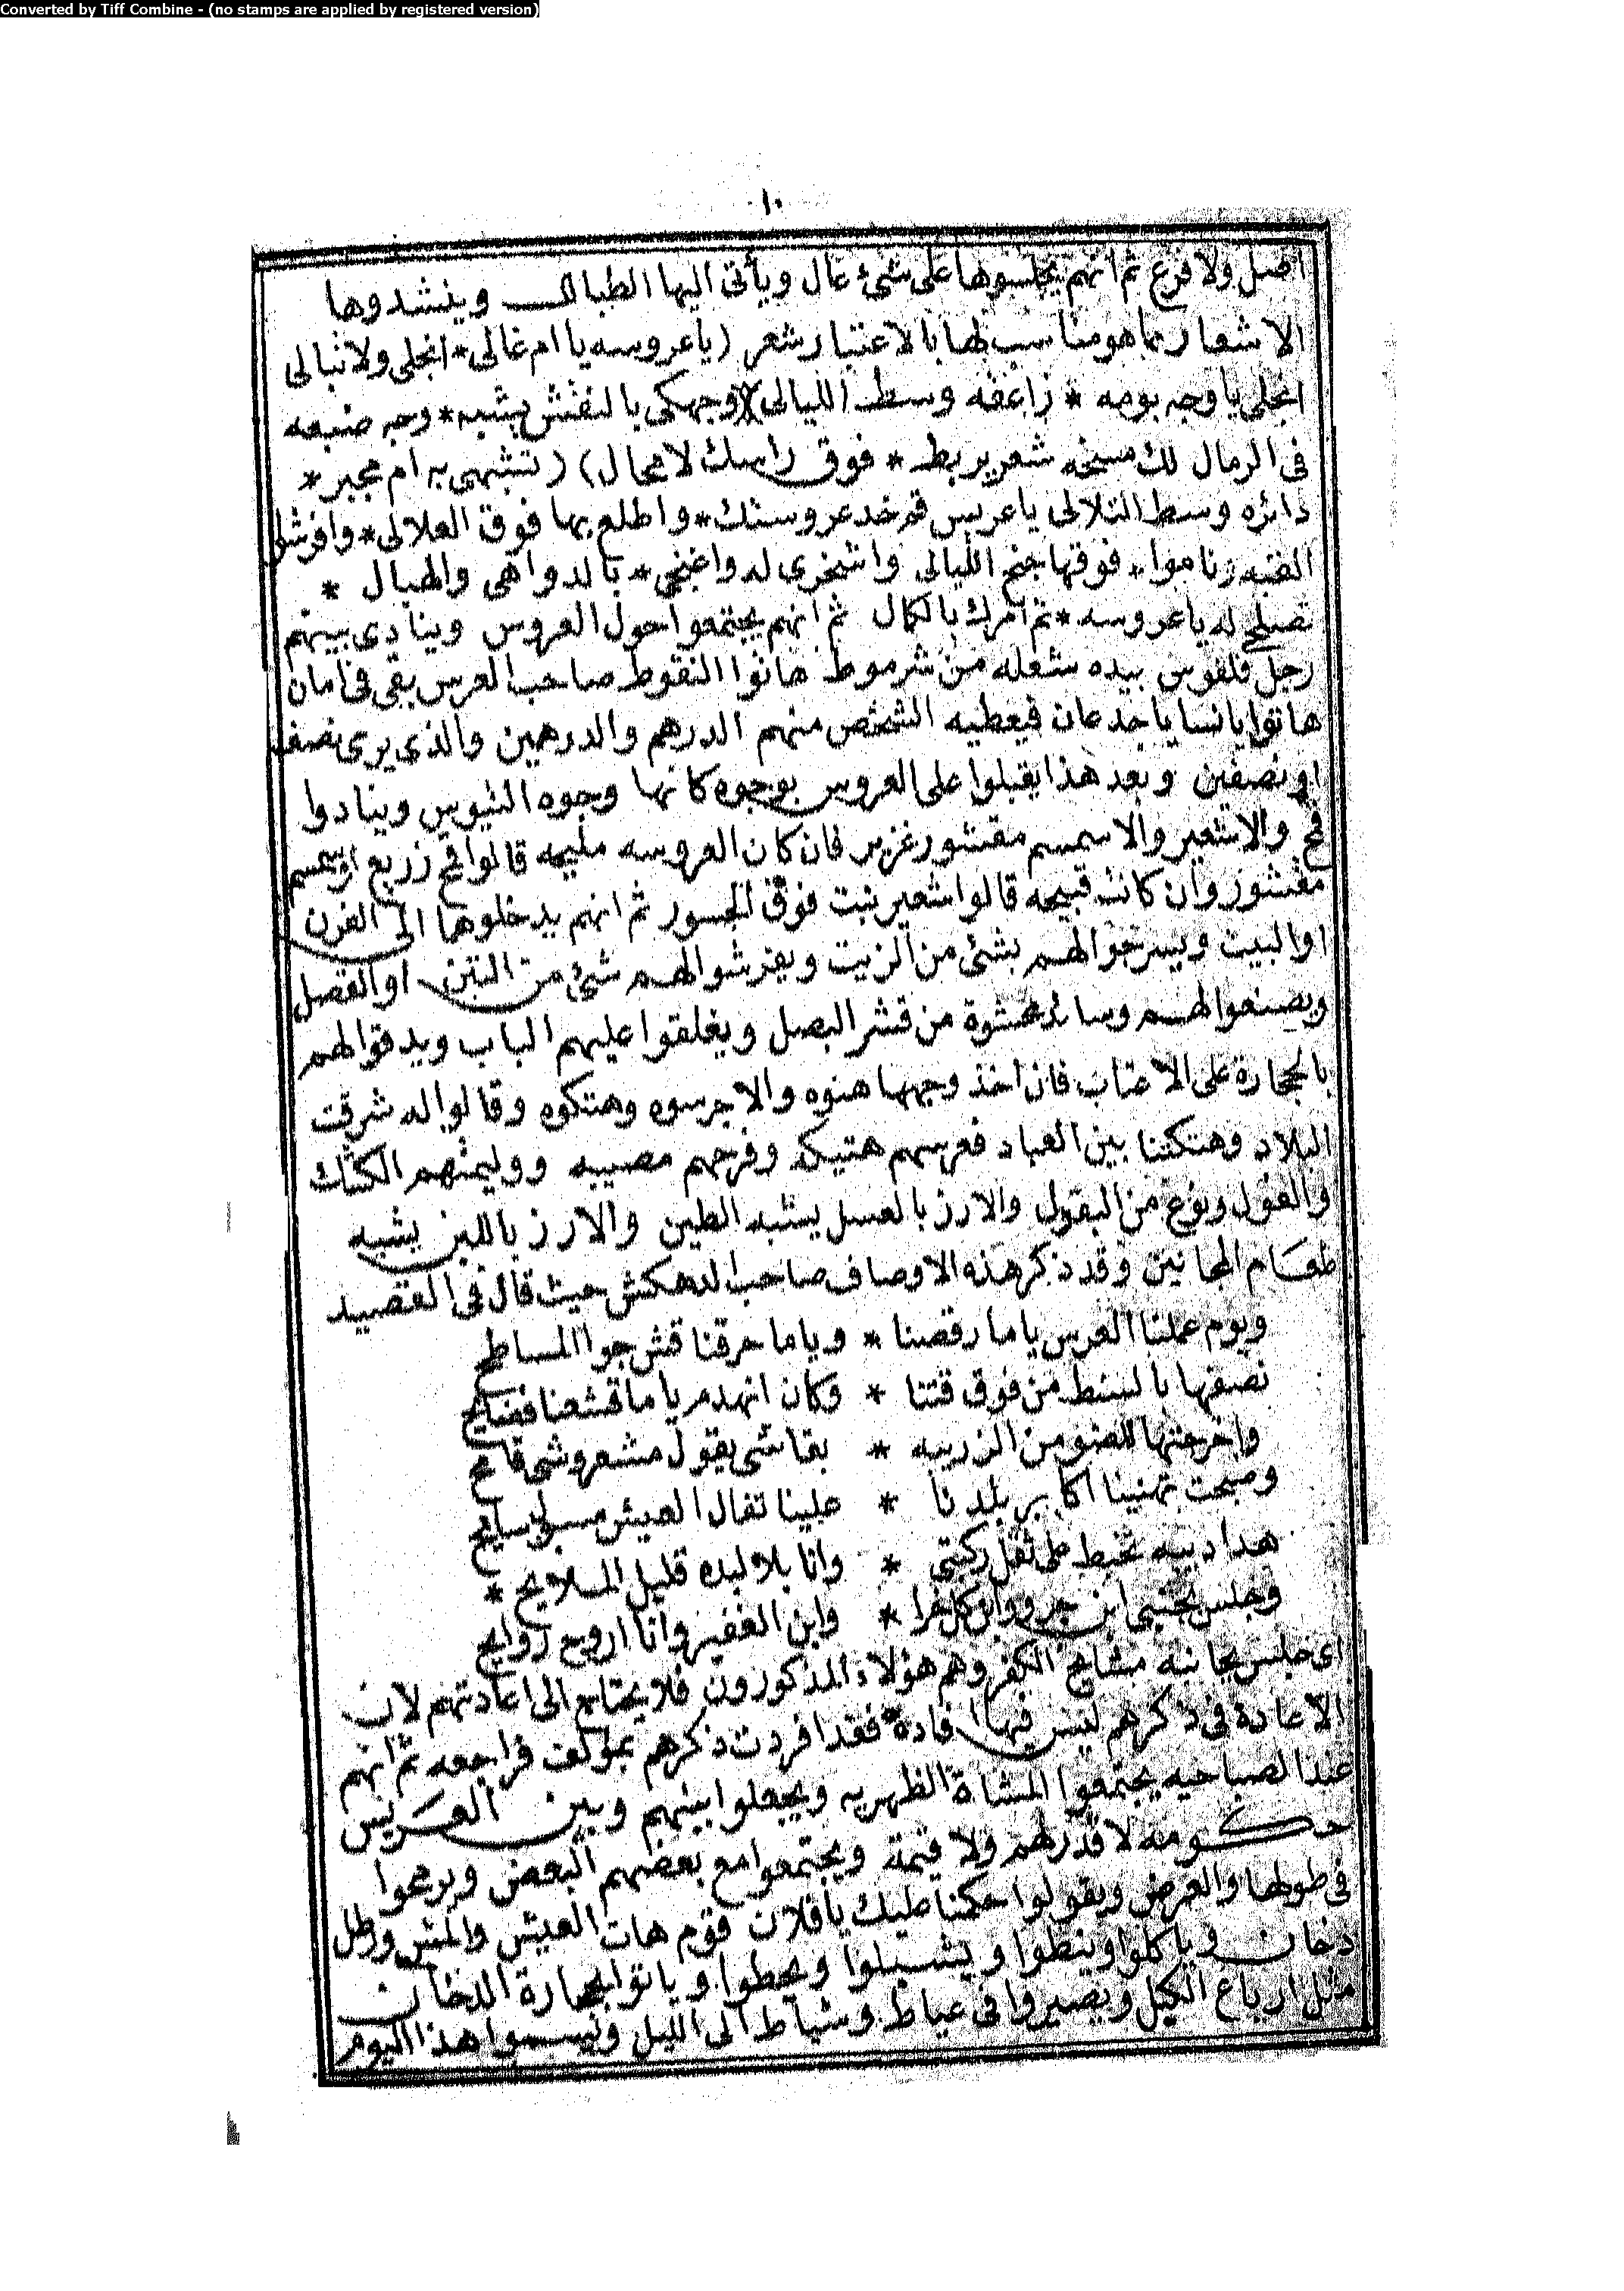 Converted by Tiff Combine - (no stamps are applied by registered version)
١٠
اصل ولا فرع ثم انهم يجلسوها على شئ عال ويأتى اليها الطبال وينشدوها
الاشعار مما هو مناسب لها بالاعتبار شعر (ياعروسه يا ام غالى * انجلى ولا تبالى
انجلى يا وجه بومه * زاعقه وسط الليالى)(وجهكى بالنقش يشبه * وجه ضبعه
فى الرمال لك مسخه شعر يربط * فوق راسك لا محال) (تشبهى يه ام مجبر *
دائره وسط التلالى ياعريس قم خد عروستك * واطلع بها فوق العلالى * وافرشلى
القبه وناموا * فوقها جنح الليالى واشخرى له واغنجى * بالدواهى والهبال *
تصلح له ياعروسه * تم امرك بالكمال ثم انهم يجتمعوا حول العروس وينادى بينهم
رجل قلفوس بيده شعله من شرموط هاتوا النقوط صاحب العرس بقى فى امان
هاتوا يا نسا يا جدعان فيعطيه الشخص منهم الدرهم والدرهمين والذى يرى نصف
او نصفين وبعد هذا يقبلوا على العروس بوجوه كانها وجوه التيوس وينادوا
قمح والاشعير والاسمسم مقشور غزير فان كان العروسه مليحه قالوا قمح زريع اوسمسم
مقشور وان كانت قبيحه قالوا شعير نبت فوق الجسور ثم انهم يدخلوها الى الفرن
او البيت ويسرجوا لهم بشئ من الزيت ويفرشوا لهم شئ من التبن او القصل
ويصنعوا لهم وسائد محشوة من قشر البصل ويغلقوا عليهم الباب ويدقوا لهم
بالحجارة على الاعتاب فان اخذ وجهها هنوه والا جرسوه وهتكوه وقالوا له شرقت
البلاد وهتكتنا بين العباد فعرسهم هتيكه وفرحهم مصيبه ووليمتهم الكشك
والفول ونوع من البقول والارز بالعسل يشبه الطين والارز باللبن يشبه
طعام المجانين وقد ذكر هذه الاوصاف صاحب الدهكش حيث قال فى القصيد
ويوم عملنا العرس ياما رقصنا * وياما حرقنا قش جوا المساطح
نصفها بالسنط من فوق قتنا * وكان انهدم ياما قشعنا فضايح
واخرجتها للضو من الزريبه * بقا شى يقول مشعر وشى قامح
وصبحت تهنينا اكابر بلدنا * علينا تقال العيش مسبلى سايح
هدا دبيه تخبط على ثقل ركبتى * وانا بلا لبده قليل الملايح *
وجلس بجنبى ابن جرو وابن كل خرا * وابن الفقير وانا اروح روايح
اى جلس بجانبه مشايخ الكفر وهم هؤلاء المذكورون فلا يحتاج الى اعادتهم لان
الاعادة فى ذكرهم ليس فيها افادة فقد افردت ذكرهم بمؤلف فراجعه ثم انهم
عند الصباحيه يجتمعوا المشاة الظهريه ويجعلوا بينهم وبين العريس
حكومه لا قدر لهم ولا قيمة ويجتمعوا مع بعضهم البعض ويرمحوا
فى طولها والعرض ويقولوا حكمنا عليك يا فلان قوم هات العيش والمش ورطل
دخان وياكلوا وينطوا ويشيلوا ويحطوا وياتوا بحجارة الدخان
مثل ارباع الكيل ويصيروا فى عياط وشياط الى الليل ويسموا هذا اليوم